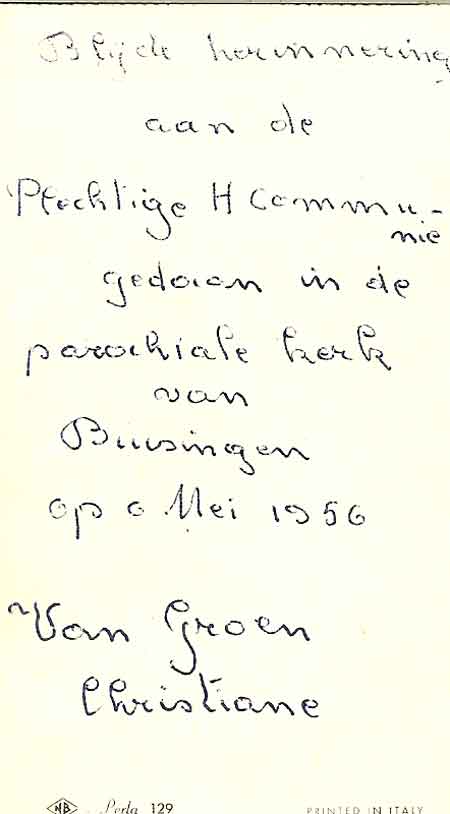 Blijde herinnering
aan de
Plechtige H Commu-
nie
gedaan in de
parochiale kerk
van
Buisingen
op 6 Mei 1956
Van Groen
Christiane
NB Perla 129 PRINTED IN ITALY